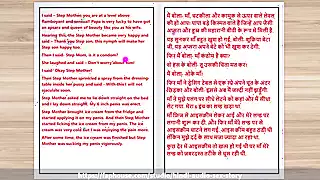 I said - Step Mother you are at a level above
Rambogant and ambca! Papa is very lucky to have got
an apsara and queen of beauty like you as his wife.
Hearing this, the Step Mother became very happy and
said - Thank you Step son, this nymph will make her
Step son happy too.
Then I said- Step Mum, is it a condom?
She laughed and said - Don't worry about that
I said! Okay Step Mother!
Then Step Mother sprinkled a spray from the dressing
table inside her pussy and said - With this I will not
conceive.
Step Mother asked me to lie down straight on the bed
and I lay down straight. My 6 inch penis was erect.
Step Mother brought ice cream from the fridge and
started applying it on my penis. And then Step Mother
started licking the ice cream from my penis. The ice
cream was very cold but I was enjoying the pain more.
After some time, the ice cream was finished but Step
Mother was sucking my penis vigorously.
मैं बोला- माँ,
हो आप!
अप्सरा और हुस्न की
यह सुनकर माँ बहुत खुश हो गई, बोली- शुक्रिया बेटा
जी, यह अप्सरा अपने बेटे को भी खुश कर देगी.
फिर मैं बोला- माँ कंडोम है क्या?
वो हंस के बोली- तू उसकी चिंता मत कर!
मैं बोला- ओके माँ!
फिर माँ ने ड्रेसिंग टेबल से एक स्प्रे अपने चूत के अंदर
छिड़का और बोली- इससे अब मैं
माँ ने मुझे पलंग पर सीधे लेटने को कहा और मैं सीधा
लेट गया. मेरा 6 इंच का लंड खड़ा था.
माँ फ्रिज से आइसक्रीम लेकर आई और मेरे लन्ड पर
लगानी शुरू कर दी. और फिर माँ मेरे लन्ड से
आइसक्रीम चाटने लग गई. आइसक्रीम बहुत ठंडी थी
लेकिन मुझे दर्द के साथ मजा ज्यादा आ रहा था.
कुछ देर में आइसक्रीम तो खत्म हो गई थी पर माँ मेरे
लन्ड को जबरदस्त तरीके से चूस रही थी.